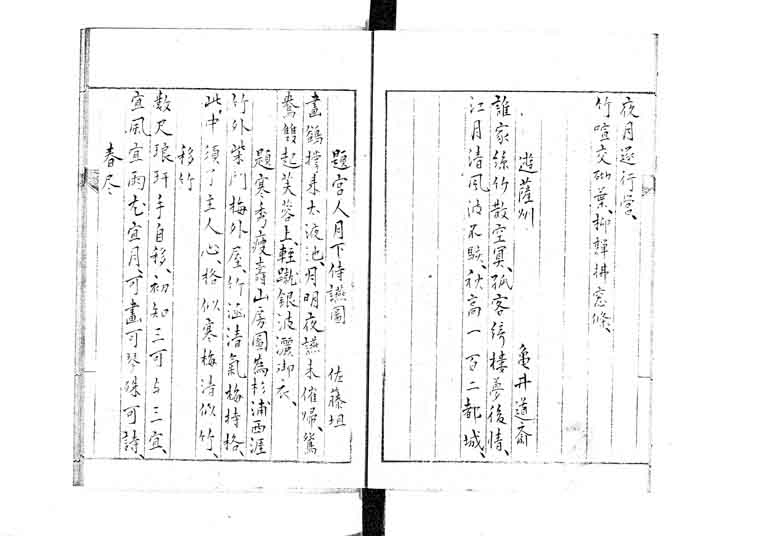 夜月遂行営、
竹喧交砌葉、柳嚲拂窓條、
遊薩州　亀井道斎
誰家絲竹散空冥、孤客倚楼夢後情、
江月清風波不駭、秋高一百二都城、
題宮人月下侍讌図　佐藤坦
畫鶴撑来太液池、月明夜讌未催帰、鴛
鴦雙起芙蓉上、軽蹴銀波灑御衣、
題寒秀痩寿山房図為杉浦西涯
竹外柴門梅外屋、竹涵清氣梅持格、
此中須了主人心、格似寒梅清似竹、
移竹
数尺琅玕手自移、初知三可与三宜、
宜風宜雨尤宜月、可畫可琴殊可詩、
春尽